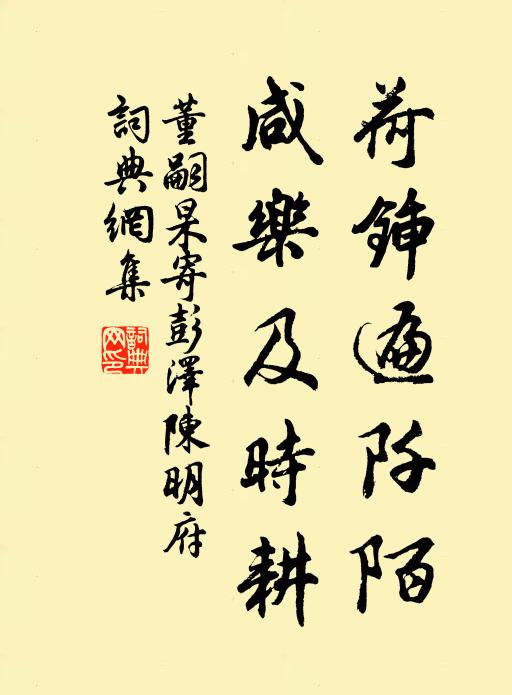 荷鍤遍阡陌
咸樂及時耕
董嗣杲寄彭澤陳明府
詞典網集
詞典網印